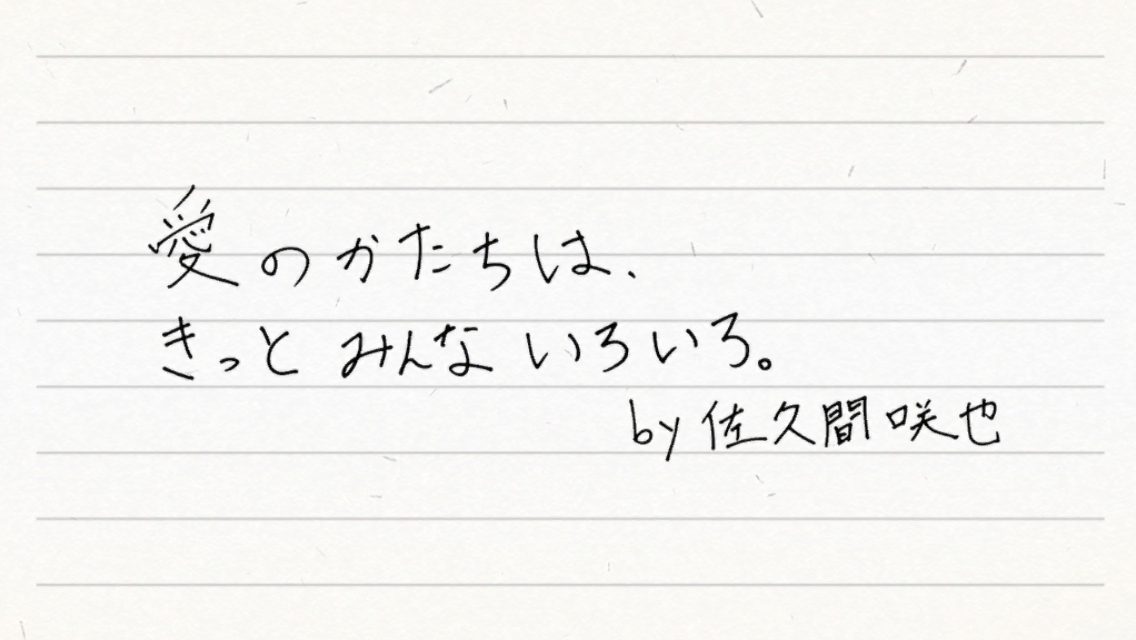 愛のかたちは、
きっとみんないろいろ。
by 佐久間咲也